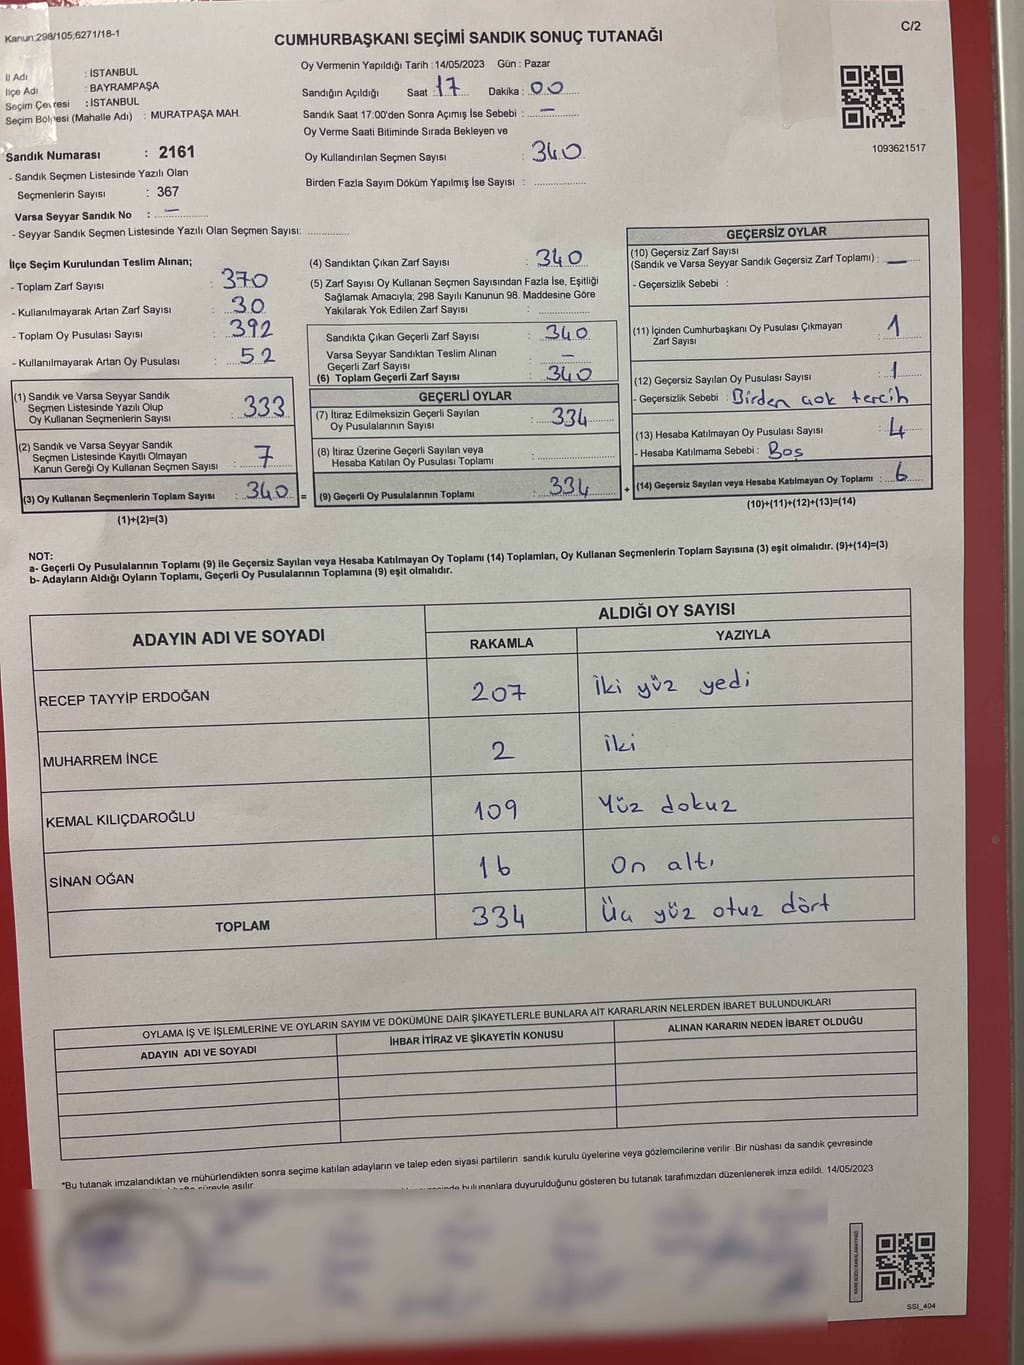 Kanun;298/105;6271/18-1
C/2
CUMHURBAŞKANI SEÇİMİ SANDIK SONUÇ TUTANAĞI
İl Adı : İSTANBUL
İlçe Adı : BAYRAMPAŞA
Seçim Çevresi : İSTANBUL
Seçim Bölgesi (Mahalle Adı) : MURATPAŞA MAH.
Sandık Numarası : 2161
- Sandık Seçmen Listesinde Yazılı Olan
Seçmenlerin Sayısı : 367
Varsa Seyyar Sandık No : —
- Seyyar Sandık Seçmen Listesinde Yazılı Olan Seçmen Sayısı: ..............
Oy Vermenin Yapıldığı Tarih : 14/05/2023 Gün : Pazar
Sandığın Açıldığı Saat : 17 Dakika : 00
Sandık Saat 17:00'den Sonra Açımış İse Sebebi : —
Oy Verme Saati Bitiminde Sırada Bekleyen ve
Oy Kullandırılan Seçmen Sayısı : 340
Birden Fazla Sayım Döküm Yapılmış İse Sayısı : ..............
1093621517
İlçe Seçim Kurulundan Teslim Alınan;
- Toplam Zarf Sayısı : 370
- Kullanılmayarak Artan Zarf Sayısı : 30
- Toplam Oy Pusulası Sayısı : 392
- Kullanılmayarak Artan Oy Pusulası : 52
(1) Sandık ve Varsa Seyyar Sandık
Seçmen Listesinde Yazılı Olup
Oy Kullanan Seçmenlerin Sayısı : 333
(2) Sandık ve Varsa Seyyar Sandık
Seçmen Listesinde Kayıtlı Olmayan
Kanun Gereği Oy Kullanan Seçmen Sayısı : 7
(3) Oy Kullanan Seçmenlerin Toplam Sayısı : 340 =
(1)+(2)=(3)
(4) Sandıktan Çıkan Zarf Sayısı : 340
(5) Zarf Sayısı Oy Kullanan Seçmen Sayısından Fazla İse, Eşitliği
Sağlamak Amacıyla; 298 Sayılı Kanunun 98. Maddesine Göre
Yakılarak Yok Edilen Zarf Sayısı : ..............
Sandıkta Çıkan Geçerli Zarf Sayısı : 340
Varsa Seyyar Sandıktan Teslim Alınan
Geçerli Zarf Sayısı : —
(6) Toplam Geçerli Zarf Sayısı : 340
GEÇERLİ OYLAR
(7) İtiraz Edilmeksizin Geçerli Sayılan
Oy Pusulalarının Sayısı : 334
(8) İtiraz Üzerine Geçerli Sayılan veya
Hesaba Katılan Oy Pusulası Toplamı : ..............
(9) Geçerli Oy Pusulalarının Toplamı : 334 +
GEÇERSİZ OYLAR
(10) Geçersiz Zarf Sayısı
(Sandık ve Varsa Seyyar Sandık Geçersiz Zarf Toplamı) : —
- Geçersizlik Sebebi :
(11) İçinden Cumhurbaşkanı Oy Pusulası Çıkmayan
Zarf Sayısı : 1
(12) Geçersiz Sayılan Oy Pusulası Sayısı : 1
- Geçersizlik Sebebi : Birden çok tercih
(13) Hesaba Katılmayan Oy Pusulası Sayısı : 4
- Hesaba Katılmama Sebebi : Boş
(14) Geçersiz Sayılan veya Hesaba Katılmayan Oy Toplamı : 6
(10)+(11)+(12)+(13)=(14)
NOT:
a- Geçerli Oy Pusulalarının Toplamı (9) ile Geçersiz Sayılan veya Hesaba Katılmayan Oy Toplamı (14) Toplamları, Oy Kullanan Seçmenlerin Toplam Sayısına (3) eşit olmalıdır. (9)+(14)=(3)
b- Adayların Aldığı Oyların Toplamı, Geçerli Oy Pusulalarının Toplamına (9) eşit olmalıdır.
ADAYIN ADI VE SOYADI
ALDIĞI OY SAYISI
RAKAMLA YAZIYLA
RECEP TAYYİP ERDOĞAN 207 İki yüz yedi
MUHARREM İNCE 2 İki
KEMAL KILIÇDAROĞLU 109 Yüz dokuz
SİNAN OĞAN 16 On altı
TOPLAM 334 Üç yüz otuz dört
OYLAMA İŞ VE İŞLEMLERİNE VE OYLARIN SAYIM VE DÖKÜMÜNE DAİR ŞİKAYETLERLE BUNLARA AİT KARARLARIN NELERDEN İBARET BULUNDUKLARI
ADAYIN ADI VE SOYADI İHBAR İTİRAZ VE ŞİKAYETİN KONUSU ALINAN KARARIN NEDEN İBARET OLDUĞU
*Bu tutanak imzalandıktan ve mühürlendikten sonra seçime katılan adayların ve talep eden siyasi partilerin sandık kurulu üyelerine veya gözlemcilerine verilir. Bir nüshası da sandık çevresinde
süreyle asılır. bulunanlara duyurulduğunu gösteren bu tutanak tarafımızdan düzenlenerek imza edildi. 14/05/2023
SSI_404